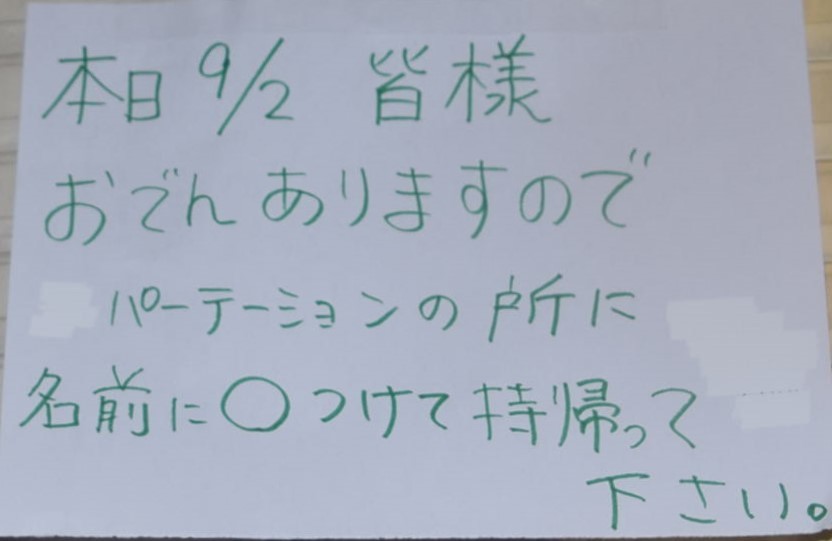 本日 9/2 皆様
おでんありますので
パーテーションの所に
名前に〇つけて持帰って
下さい。